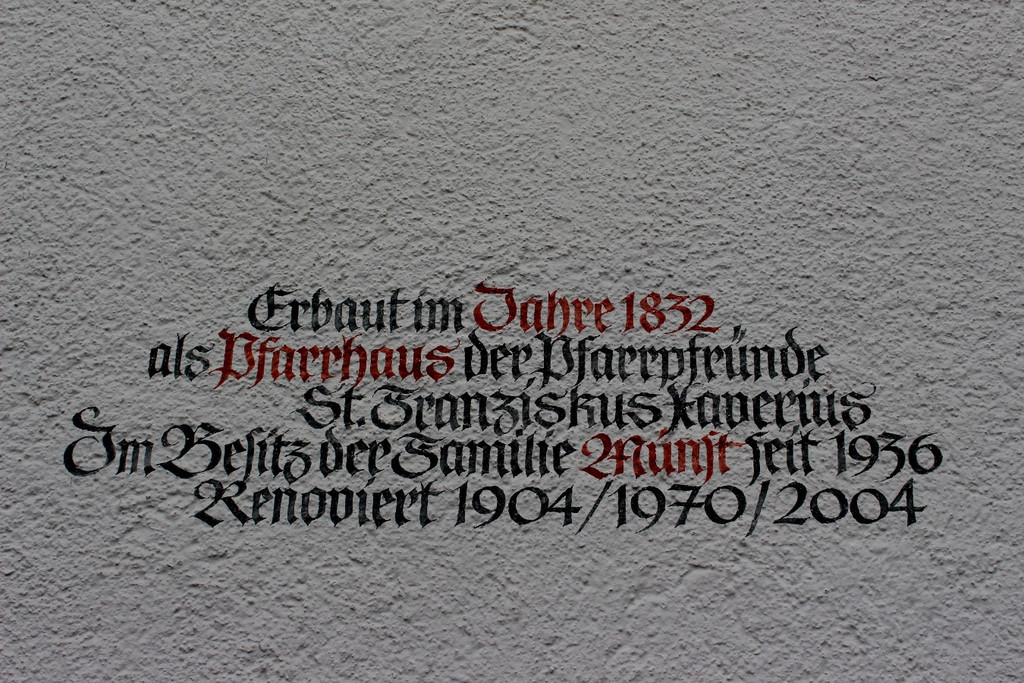 Erbaut im Jahre 1832
als Pfarrhaus der Pfarrpfründe
St. Franziskus Xaverius
Im Besitz der Familie Münst seit 1936
Renoviert 1904/1970/2004